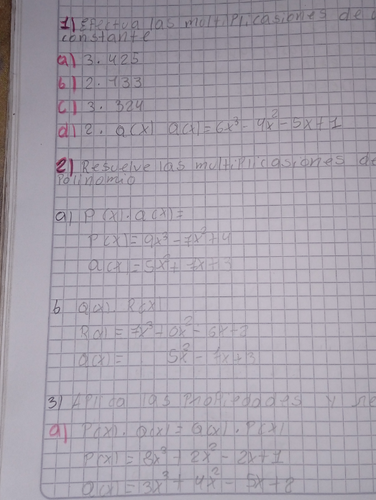 1) Efectua las multiplicasiones de
constante
a) 3. 425
b) 2. 133
c) 3. 324
d) 2. Q(x) Q(x)=6x³-4x²-5x+1
2) Resuelve las multiplicasiones de
Polinomio
a) P(x). Q(x)=
P(x)=9x³-7x²+4
Q(x)=5x²+7x+3
b Q(x). R(x)
5x²-7x+3
3) Aplica las Propiedades y
a) P(x). Q(x)=Q(x). P(x)
P(x)=8x³+2x²-2x+1
Q(x)=3x³+4x²-5x+2